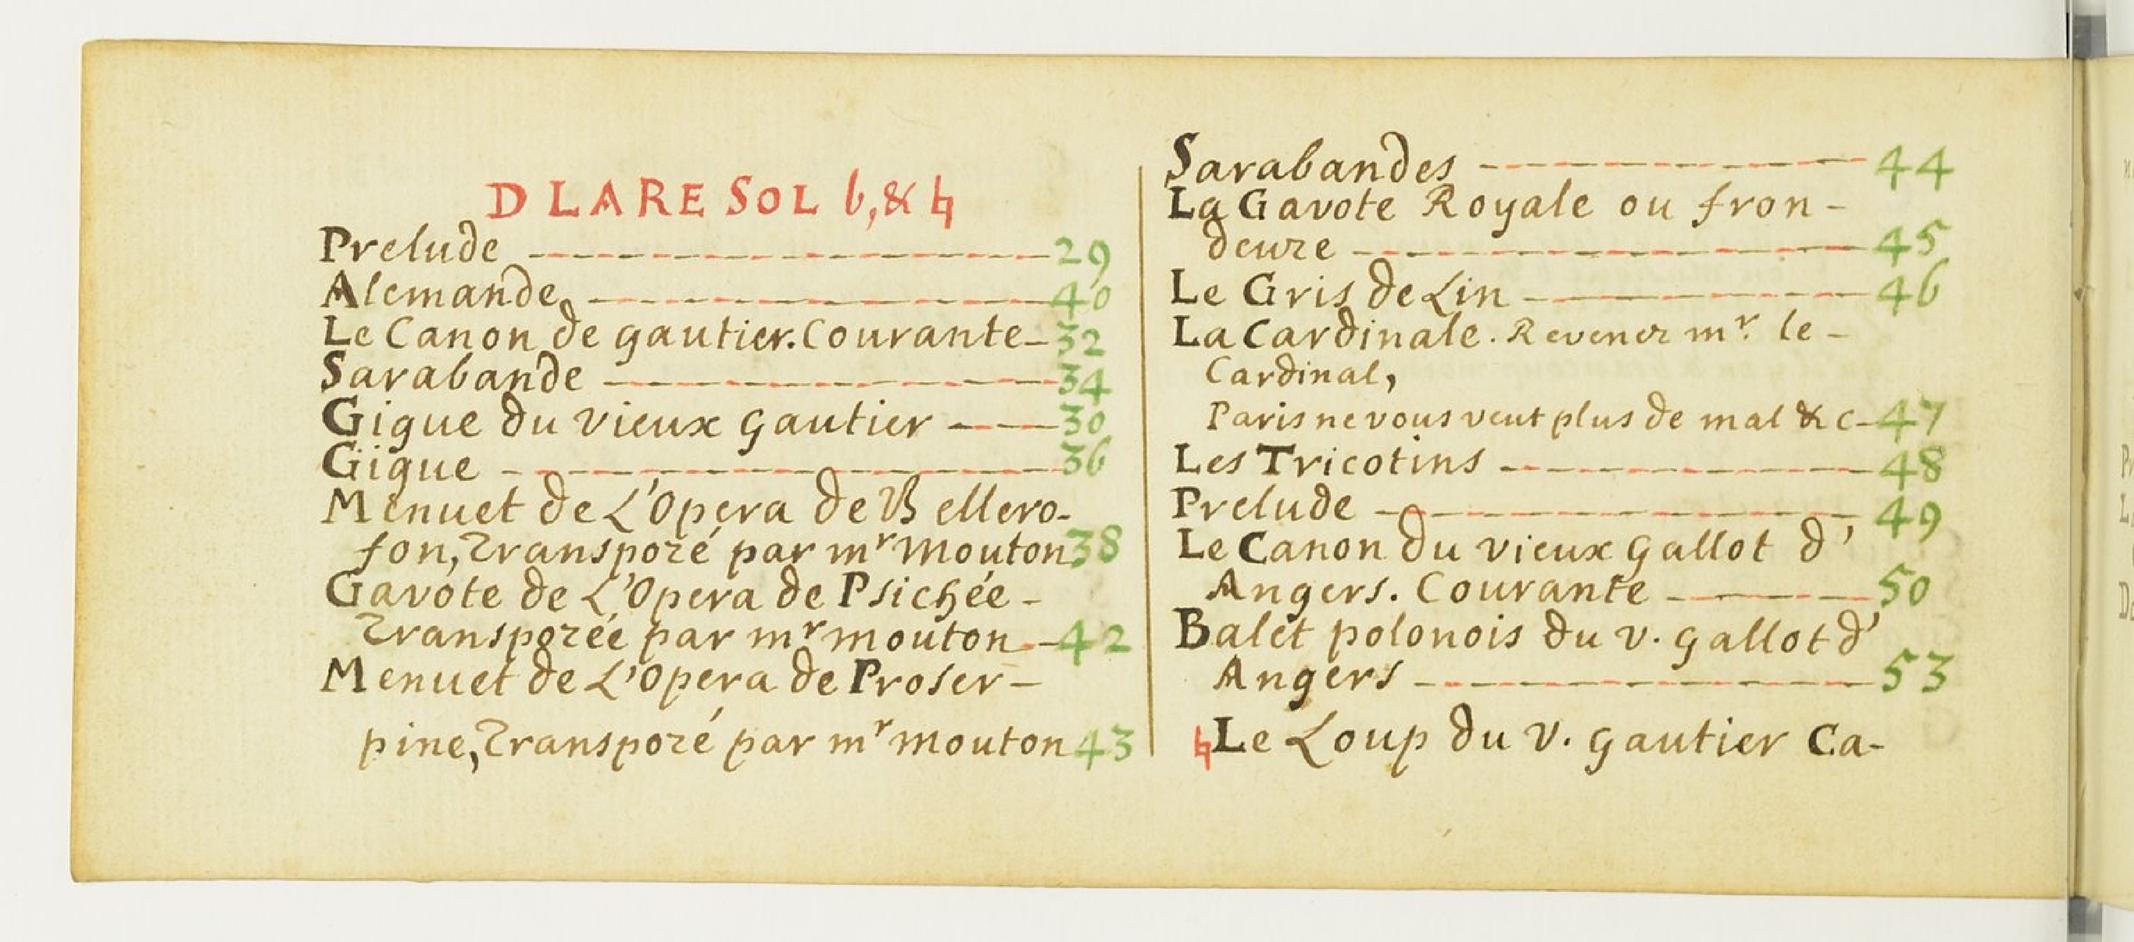 D LA RE SOL b, & ♮
Prelude 29
Alemande, 40
Le Canon de gautier. Courante 32
Sarabande 34
Gigue du vieux gautier 30
Gigue 36
Menuet de L'Opera de Bellero-
fon, Transpozé par mr mouton 38
Gavote de L'Opera de Psichée -
Transpozée par mr mouton 42
Menuet de L'Opera de Proser-
pine, Transpozé par mr mouton 43
Sarabandes 44
La Gavote Royale ou fron-
deuze 45
Le Gris de Lin 46
La Cardinale. Revenez mr. le -
Cardinal,
Paris ne vous veut plus de mal & c 47
Les Tricotins 48
Prelude 49
Le Canon du vieux Gallot d'
Angers. Courante 50
Balet polonois du v. gallot d'
Angers 53
♮ Le Loup du V. gautier Ca-